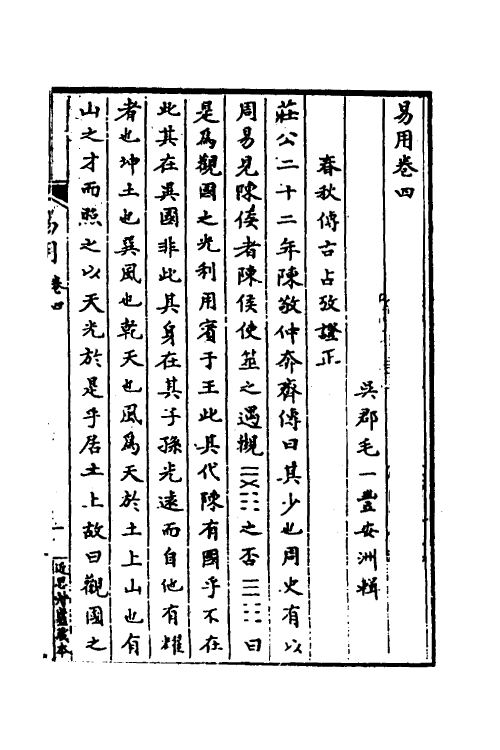 易用卷四
吳郡毛一豐安洲輯
春秋傳古占攷證正
莊公二十二年陳敬仲奔齊傳曰其少也周史有以
周易見陳侯者陳侯使筮之遇觀之否曰
是爲觀國之光利用賓于王此其代陳有國乎不在
此其在異國非此其身在其子孫光遠而自他有耀
者也坤土也巽風也乾天也風爲天於土上山也有
山之才而照之以天光於是乎居土上故曰觀國之
易用 卷四 一